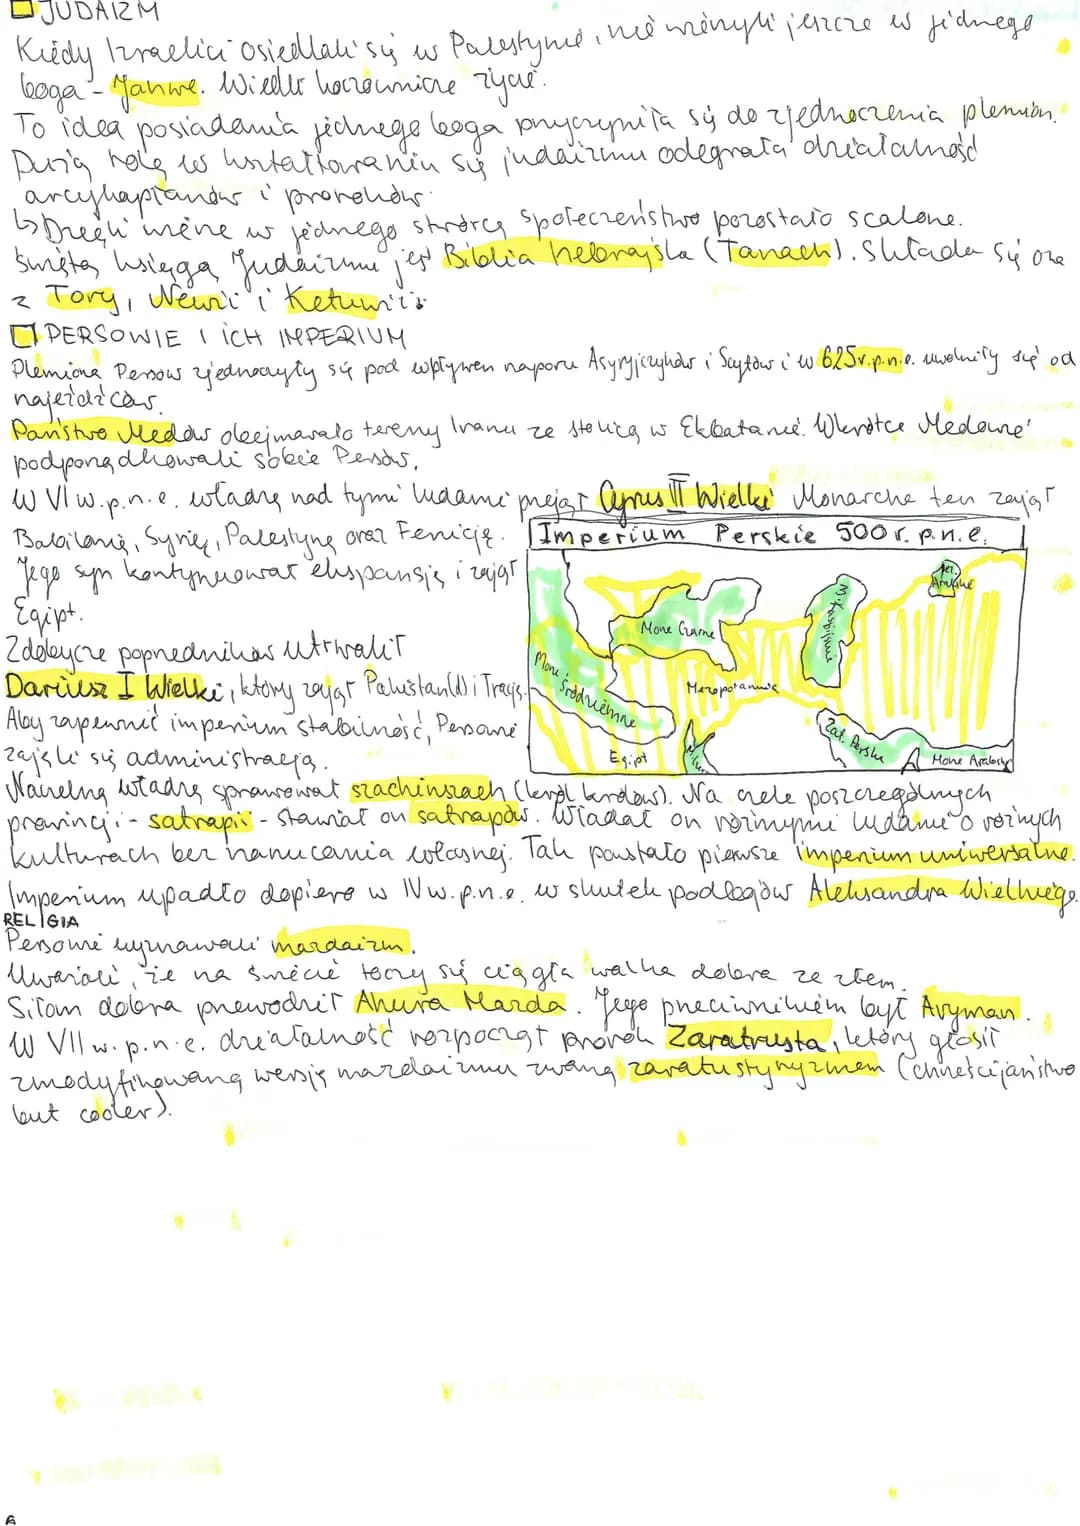 JUDAIZM
Kiedy Izraelici osiedlali się w Palestynie, nie wierzyli jeszcze w jednego
boga - Jahwe. Wiedli koczownicze życie.
To idea posiadania jednego boga przyczyniła się do zjednoczenia plemion.
Dużą rolę w kształtowaniu się judaizmu odegrała działalność
arcykapłanów i proroków.
↳Dzięki wierze w jednego stwórcę społeczeństwo pozostało scalone.
Świętą księgą Judaizmu jest Biblia hebrajska (Tanach). Składa się ona
z Tory, Newii i Ketuwii
PERSOWIE I ICH IMPERIUM
Plemiona Persów zjednoczyły się pod wpływem naporu Asyryjczyków i Scytów i w 625r.p.n.e. uwolniły się od
najeźdźców.
Państwo Medów obejmowało tereny Iranu ze stolicą w Ekbatanie. Wkrótce Medowie
podporządkowali sobie Persów.
W VI w.p.n.e. władzę nad tymi ludami przejął Cyrus II Wielki. Monarcha ten zajął
Babilonię, Syrię, Palestynę oraz Fenicję.
Jego syn kontynuował ekspansję i zajął
Egipt.
Zdobycze poprzedników utrwalił
Dariusz I Wielki, który zajął Pakistan(d) i Trację.
Aby zapewnić imperium stabilność, Persowie
zajęli się administracją.
Imperium Perskie 500 r. p.n.e.
Morze Czarne
M. Kaspijskie
Jez. Aralskie
Morze Śródziemne
Mezopotamia
Egipt
Zat. Perska
Morze Arabskie
Naczelną władzę sprawował szachinszach (król królów). Na czele poszczególnych
prowincji - satrapii - stawiał on satrapów. Władał on różnymi ludami o różnych
kulturach bez narzucania własnej. Tak powstało pierwsze imperium uniwersalne.
Imperium upadło dopiero w IV w.p.n.e. w skutek podbojów Aleksandra Wielkiego.
RELIGIA
Persowie wyznawali mazdaizm.
Uważali, że na świecie toczy się ciągła walka dobra ze złem.
Siłom dobra przewodził Ahura Mazda. Jego przeciwnikiem był Aryman.
W VII w. p.n.e. działalność rozpoczął prorok Zaratrusta, który głosił
zmodyfikowaną wersję mazdaizmu zwaną zaratustryzmem (chrześcijaństwo
but cooler).
6